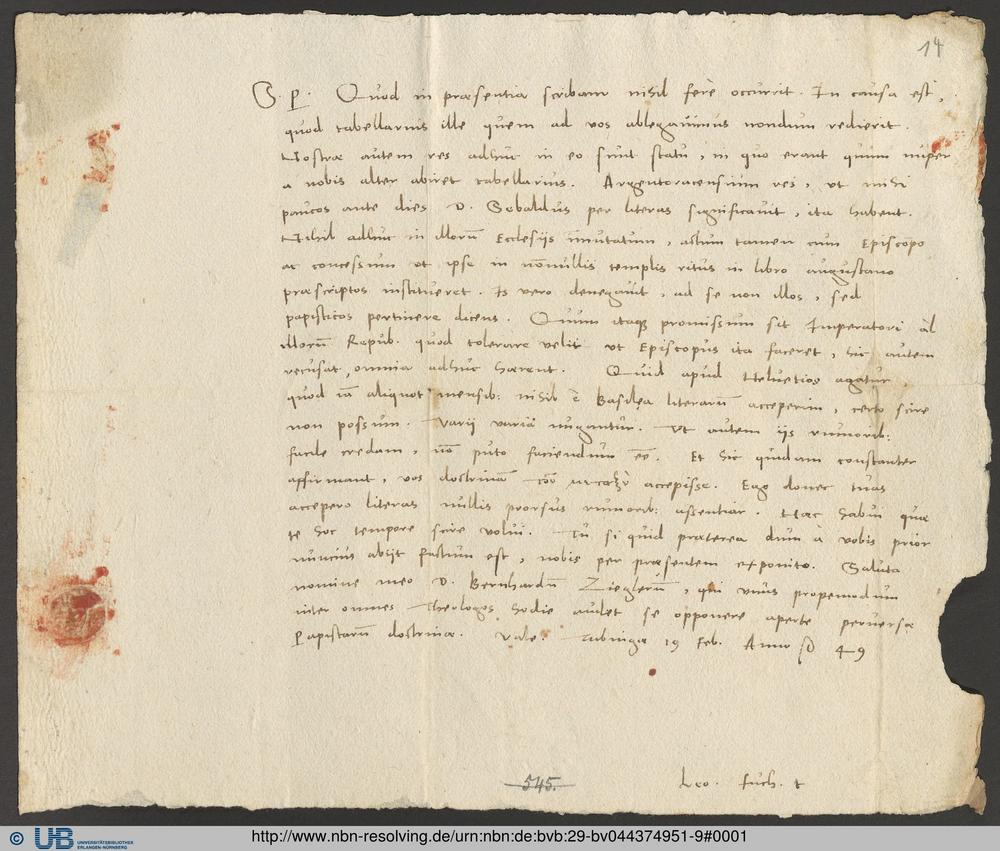 14
S. P. Quod in præsentia scribam nihil ferè occurrit. In causa est,
quod tabellarius ille quem ad vos ablegavimus nondum redierit.
Nostræ autem res adhuc in eo sunt statu, in quo erant quum nuper
a nobis alter abiret tabellarius. Argentoracensium res, ut mihi
paucos ante dies D. Sebaldus per literas significavit, ita habent.
Nihil adhuc in illorũ Ecclesijs immutatum, actum tamen cum Episcopo
ac concessum ut ipse in nõnullis templis ritus in libro augustano
præscriptos institueret. Is vero denegavit, ad se non illos, sed
papisticos pertinere dicens. Quum itaqꝫ promissum sit Imperatori ab
illorũ Repub. quod tolerare velit ut Episcopus ita faceret, hic autem
recusat, omnia adhuc hærent. Quid apud Helvetios agatur
quod iã aliquot mensib: nihil è Basilea literarũ acceperim, certo scire
non possum. Varij varia nugantur. Ut autem ijs rumorib:
facile credam, nõ puto faciendum eẽ. Et hic quidam constanter
affirmant, vos doctrinam accepisse. Ego donec tuas
accepero literas nullis prorsus rumorib: assentiar. Hæc habui quæ
te hoc tempore scire volui. Tu si quid præterea dum à vobis prior
nuncius abijt factum est, nobis per præsentem exponito. Saluta
nomine meo D. Bernhardũ Zieglerũ, qui unus propemodum
inter omnes Theologos hodie audet se opponere aperte perversæ
Papistarũ doctrinæ. Vale. Tubingæ 19 Feb. Anno 49
545.
Leo. Fuch.
© UB UNIVERSITÄTSBIBLIOTHEK
ERLANGEN-NÜRNBERG
http://www.nbn-resolving.de/urn:nbn:de:bvb:29-bv044374951-9#0001